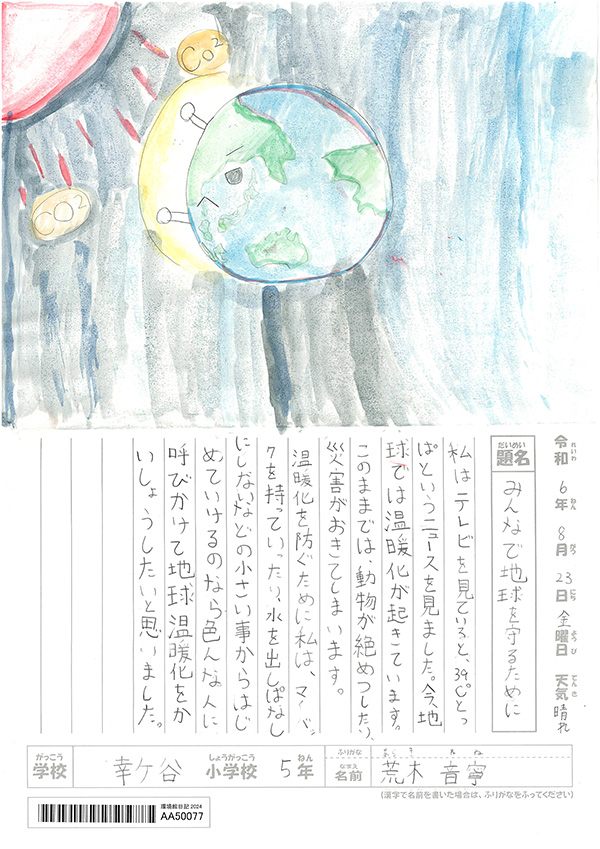 CO2
CO2
令和6年8月23日金曜日 天気 晴れ
れいわ ねん がつ にち ようび てんき
だいめい
題名
みんなで地球を守るために
私はテレビを見ていると、39℃とっ
ぱというニュースを見ました。今地
球では温暖化が起きています。
このままでは、動物が絶めつしたり、
災害がおきてしまいます。
温暖化を防ぐために私は、マイバッ
クを持っていったり、水を出しぱなし
にしないなどの小さい事からはじ
めていけるのなら色んな人に
呼びかけて地球温暖化をか
いしょうしたいと思いました。
がっこう
学校
幸ケ谷
しょうがっこう
小学校
5年
ねん
ふりがな
あらき ね
なまえ
名前
荒木 音寧
(漢字で名前を書いた場合は、ふりがなをふってください)
環境絵日記2024
AA50077